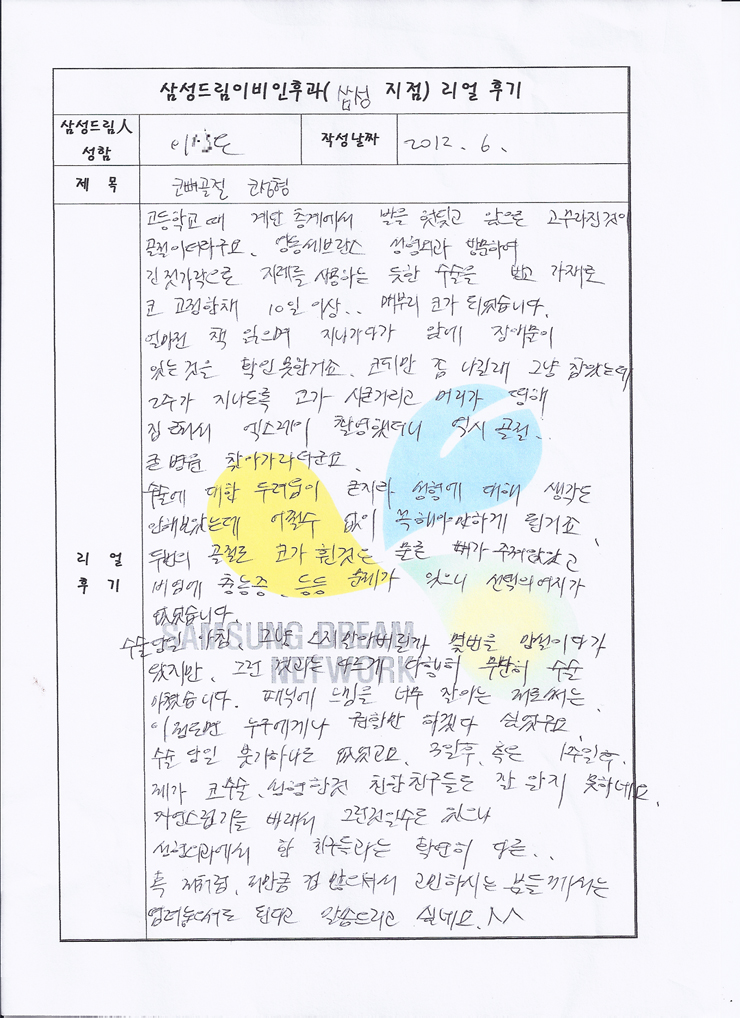 삼성드림이비인후과( 삼성 지점) 리얼 후기
삼성드림人
성함
작성날짜 2012. 6.
제 목 코뼈골절 코성형
고등학교 때 계단 층계에서 발을 헛딛고 앞으로 고꾸라진것이
골절이더라구요. 영동세브란스 성형외과 방문하여
긴 젓가락으로 지레를 사용하는 듯한 수술을 받고 가재로
코 고정한채 10일 이상.. 매부리 코가 되었습니다.
얼마전 책 읽으며 지나가다가 앞에 장애물이
있는것을 확인 못한거죠. 코피만 좀 나길래 그냥 참았는데
2주가 지나도록 코가 시큰거리고 머리가 띵해
집 근처서 엑스레이 촬영했더니 역시 골절..
큰 병원 찾아가라더군요.
수술에 대한 두려움이 큰지라 성형에 대해 생각도
안해보았는데 어쩔수 없이 꼭해야만하게 된거죠.
두번의 골절로 코가 휜것은 물론 뼈가 주저앉았고
비염에 충농증, 등등 문제가 있으니 선택의여지가
없었습니다.
수술당일 아침, 그냥 살아버릴까 몇번을 망설이다가
왔지만, 그런 것과는 다르게 다행히 무탄히 수술
이정도면 누구에게나 권할만 하겠다 싶었구요.
수술 당일 붓기하나도 없었고요. 3일후, 혹은 1주일후.
제가 코수술, 성형한것 친한친구들도 잘 알지 못하네요.
자연스럽기를 바래서 그런것일수도 있으나
성형외과에서 한 친구들과는 확연히 다른..
혹 저처럼, 저만큼 겁 많으셔서 고민하시는 분들께서는
염려놓으셔도 된다고 말씀드리고 싶네요. ^^
리 얼
후 기
SAMSUNG DREAM
NETWORK